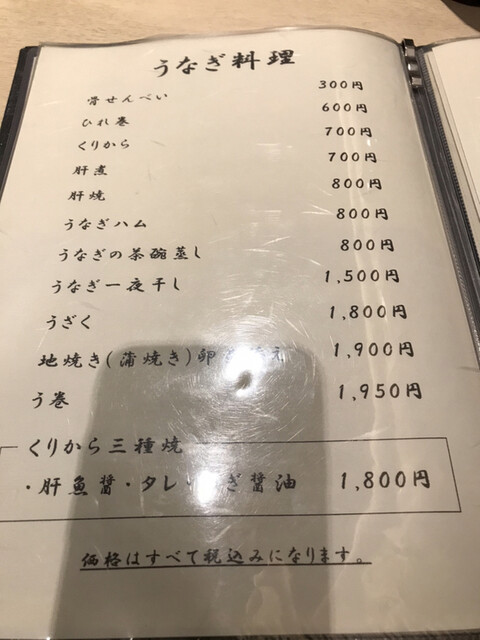 うなぎ料理
骨せんべい 300円
ひれ巻 600円
くりから 700円
肝煮 700円
肝焼 800円
うなぎハム 800円
うなぎの茶碗蒸し 800円
うなぎ一夜干し 1,500円
うざく 1,800円
地焼き(蒲焼き)卵 1,900円
う巻 1,950円
くりから三種焼
・肝魚醤・タレ・ぎ醤油 1,800円
価格はすべて税込みになります。